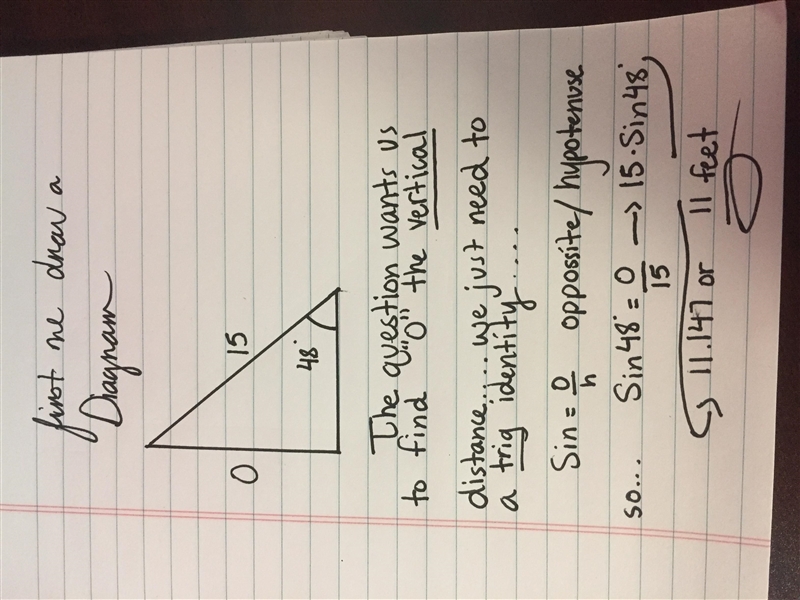 first we draw a
Diagram
O
15
48°
The question wants us
to find "O" the vertical
distance..... we just need to
a trig identity.....
Sin = O/h oppossite/hypotenuse
so... Sin48° = O/15 → 15·Sin48°
↳ 11.147 or 11 feet